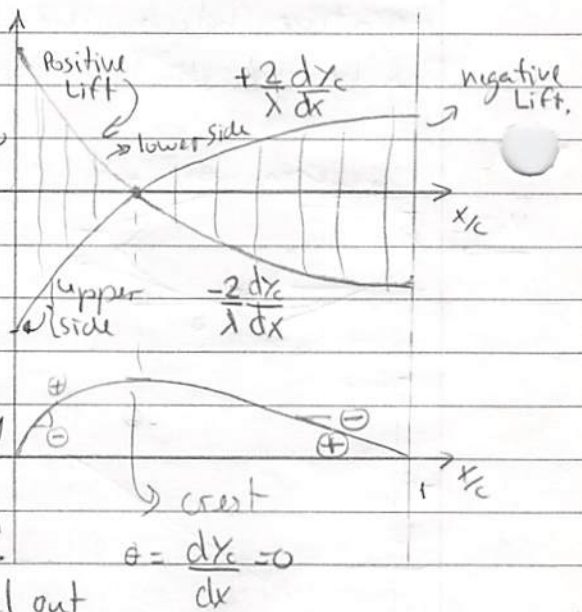 Positive
Lift
+2/λ dYc/dx
negative
Lift.
lower side
x/c
upper
side
-2/λ dYc/dx
⊕
⊖
⊖
⊕
1
x/c
crest
θ = dYc/dx = 0
out